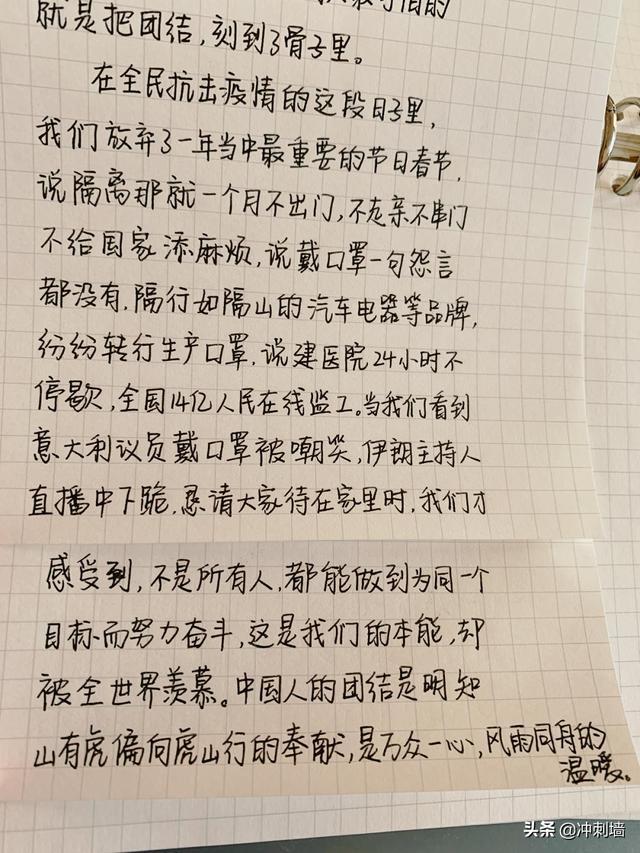 就是把团结,刻到了骨子里。
在全民抗击疫情的这段日子里,
我们放弃了一年当中最重要的节日春节,
说隔离那就一个月不出门,不走亲不串门
不给国家添麻烦,说戴口罩一句怨言
都没有,隔行如隔山的汽车电器等品牌,
纷纷转行生产口罩,说建医院24小时不
停歇,全国14亿人民在线监工。当我们看到
意大利议员戴口罩被嘲笑,伊朗主持人
直播中下跪,恳请大家待在家里时,我们才
感受到,不是所有人,都能做到为同一个
目标而努力奋斗,这是我们的本能,却
被全世界羡慕。中国人的团结是明知
山有虎偏向虎山行的奉献,是万众一心,风雨同舟的
温暖。
头条 @冲刺墙